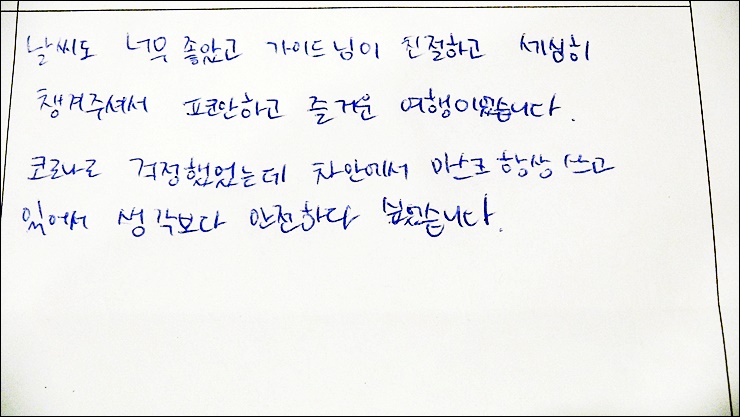 날씨도 너무 좋았고 가이드님이 친절하고 세심히
챙겨주셔서 편안하고 즐거운 여행이었습니다.
코로나로 걱정했었는데 차안에서 마스크 항상 쓰고
있어서 생각보다 안전하다 싶었습니다.